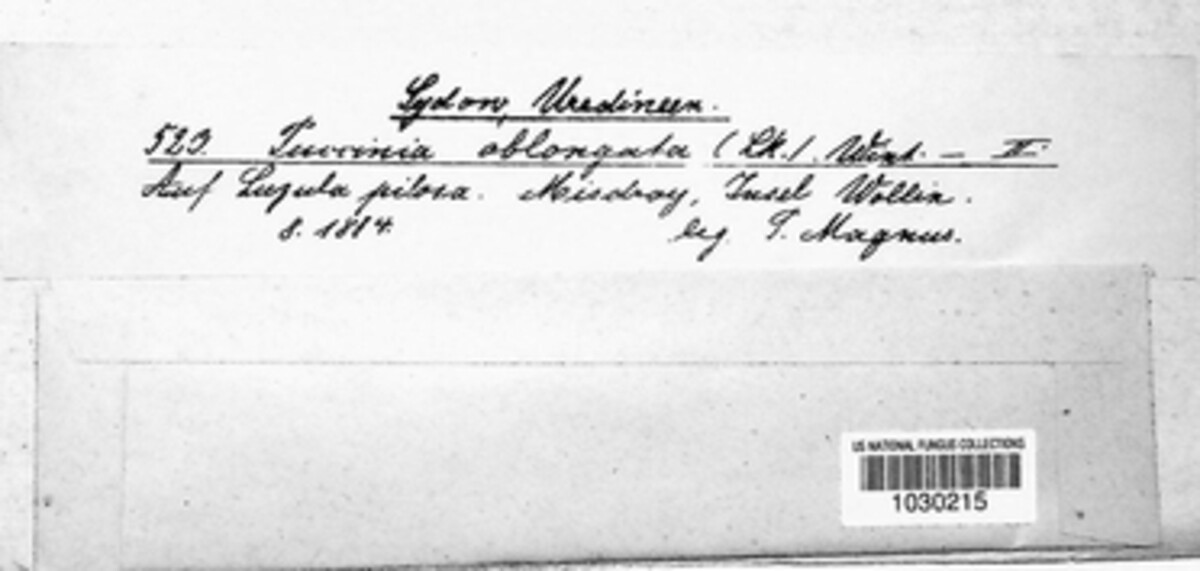 Sydow, Uredineen.
523. Puccinia oblongata (Lk.) Wint. — II.
Auf Luzula pilosa. Misdroy, Insel Wollin.
8. 1884. leg. P. Magnus.
US NATIONAL FUNGUS COLLECTIONS
1030215